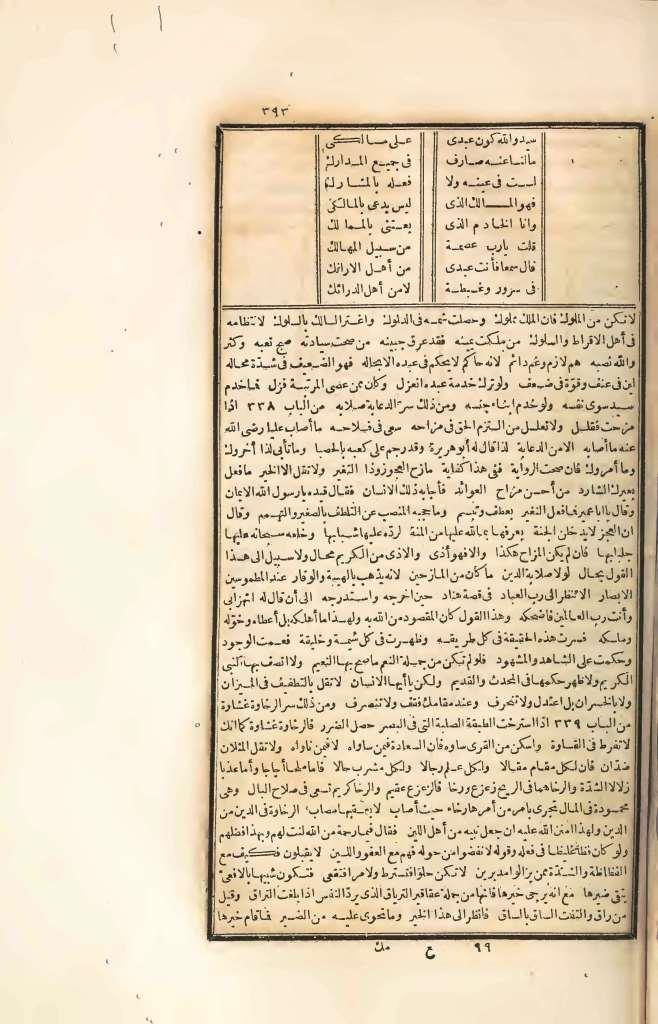 ٣٩٣
سيد والله كون عبدى على مسالكى
مالنا عنه صارف فى جميع المدارك
لست فى عينه ولا فعله بالمشارك
فهو المالك الذى ليس يدعى بالمالكى
وانا الخادم الذى يعتنى بالممالك
قلت يارب عصمة من سبيل المهالك
قال سمعا فأنت عبدى من أهل الارائك
فى سرور وغبطة لا من أهل الدرائك
لا تكن من الملوك فان الملك مملوك وحصلت شمسه فى الدلوك واغتر السالك بالسلوك لانتظامه
فى أهل الاقراط والسلوك من ملكت يمينه فقد عرق جبينه من صحت سيادته صح تعبه وكثر
والله نصبه هم لازم وغم دائم لانه حاكم لا يحكم فى عبده الا بحاله فهو الضعيف فى شدة محاله
اين فى عنف وقوة فى ضعف ولو ترك خدمة عبده انعزل وكان ممن عصى المرتبة فزل فما خدم
سيد سوى نفسه ولو خدم ابناء جنسه ومن ذلك سر الدعابة صلابه من الباب ٣٣٨ اذا
مزحت فقلل ولا تعلل من التزم الحق فى مزاحه سعى فى فلاحه ما أصاب عليا رضى الله
عنه ما أصابه الا من الدعابة لذا قال له أبو هريرة وقد رجم على كعبه بالحصبا وما تأبى لذا أخروك
وما أمروك فان صحت الرواية فنى هذا كفاية مازح العجوز وذا النغير ولا تقل الا الخير ما فعل
بعيرك الشارد من أحسن مزاح العوائد فأجابه ذلك الانسان فقال قيده يا رسول الله الايمان
وقال يا ابا عمير ما فعل النغير يعطف وتبسم وما حجبه المنصب عن التلطف بالصغير والتهمم وقال
ان العجز لا يدخلن الجنة يعرفها بما لله عليها من المنة لرده عليها شبابها وخلعه سبحانه عليها
جلبابها فان لم يكن المزاح هكذا والا فهو أذى والاذى من الكريم محال ولا سبيل الى هذا
القول بحال لولا صلابة الدين ما كان من المازحين لانه يذهب بالهيبة والوقار عند المطموسين
الابصار الا تنظر الى رب العباد فى قصة هناد حين اخرجه واستدرجه الى أن قال له اتهزأ بى
وأنت رب العالمين فاضحكه وهذا القول كان المقصود من الله به ولهذا ما أهلكه بل أعطاه وخوله
وملكه فسرت هذه الحقيقة فى كل طريقه وظهرت فى كل شيمة وخليقة فعمت الوجود
وحكمت على الشاهد والمشهود فلو لم تكن من جملة النعم ما صح بها النعيم ولا اتصف بها النبى
الكريم ولا ظهر حكمها فى المحدث والقديم ولكن يا أيها الانسان لا تقل بالتطفيف فى الميزان
ولا بالخسران بل اعتدل ولا تنحرف وعند مقامك فقف ولا تنصرف ومن ذلك سر الرخاوة غشاوة
من الباب ٣٣٩ اذا استرخت الطبقة الصلبة التى فى البصر حصل الضرر فالرخاوة غشاوة كما انك
لا تفرط فى القساوة واسكن من القرى ساوه فان السعادة فيمن ساواه لا فيمن ناواه ولا تقل المثلان
ضدان فان لكل مقام مقالا ولكل علم رجالا ولكل مشرب حالا فاما ملحا أجاجا وأما عذبا
زلالا الشدة والرخا هما فى الريح زعزع ورخا فالزعزع عقيم والرخا كريم تسعى فى صلاح البال وهى
محمودة فى المال تجرى بأمر من أمرها رخاء حيث أصاب لا يعقبها مصاب الرخاوة فى الدين من
الدين ولهذا امتن الله عليه ان جعل نبيه من أهل اللين فقال فبما رحمة من الله لنت لهم وبهذا فضلهم
ولو كان فظا غليظا فى فعله وقوله لانفضوا من حوله فهم مع العفو واللين لا يقبلون فكيف مع
الفظاظة والشدة ممن يزالوا مدبرين لا تكن حلوا فتسترط ولا مرا فتقعى فتكون شبيها بالافعى
يتقى ضيرها مع انه يرجى خيرها فانها من جملة عقاقير الترياق الذى يرد النفس اذا بلغت التراق وقيل
من راق والتفت الساق بالساق فانظر الى هذا الخير وما تحوى عليه من الضير فما قام خيرها
٩٩ ع مك